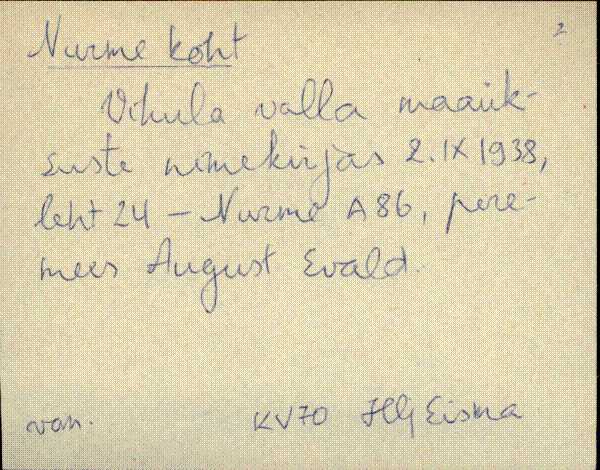 2
Nurme koht
Vihula valla maaük-
suste nimekirjas 2.IX 1938,
leht 24 - Nurme A86, pere-
mees August Evald.
KV70 Eisma